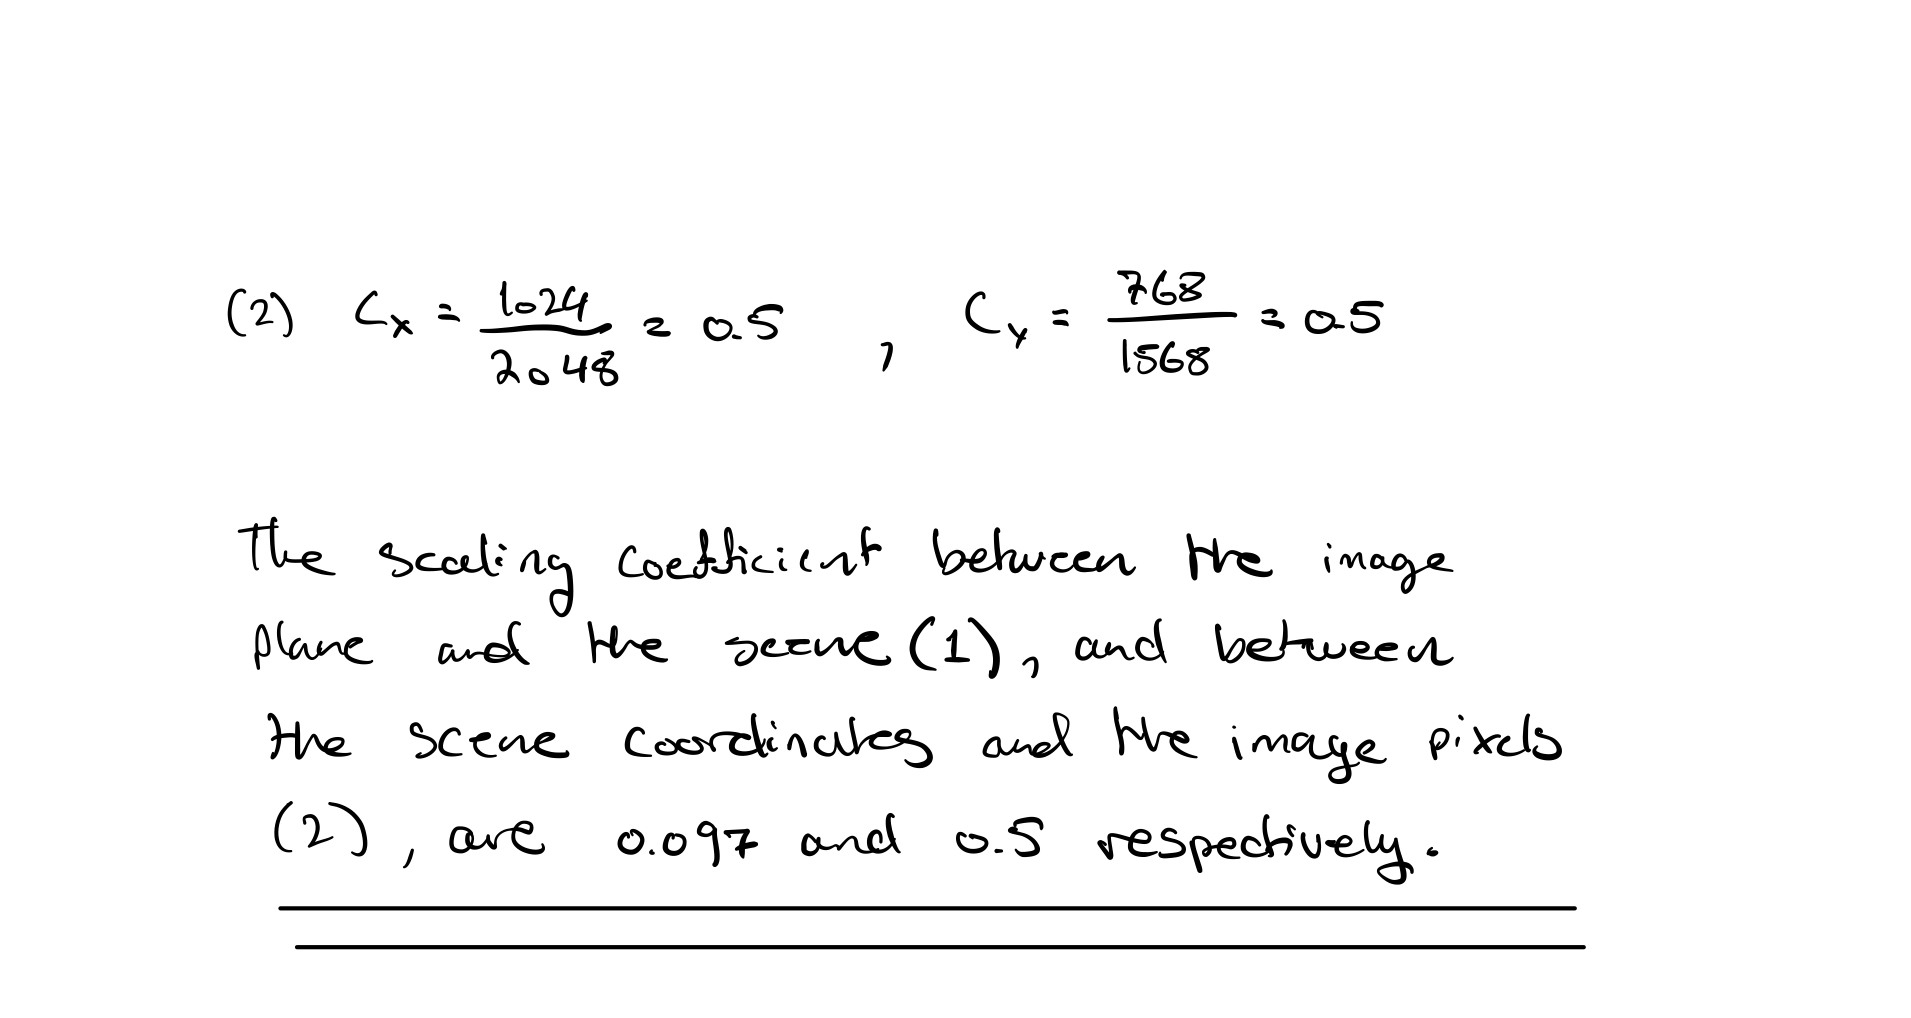 (2) Cx = 1024/2048 = 0.5 , Cy = 768/1568 = 0.5
The scaling coefficient between the image
plane and the scene (1), and between
the scene coordinates and the image pixels
(2), are 0.097 and 0.5 respectively.